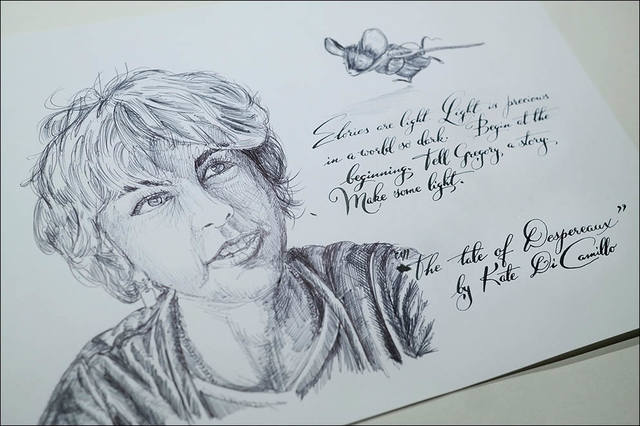 Stories are light. Light is precious
in a world so dark. Begin at the
beginning. Tell Gregory, a story.
Make some light.
"The tale of Despereaux"
by Kate DiCamillo